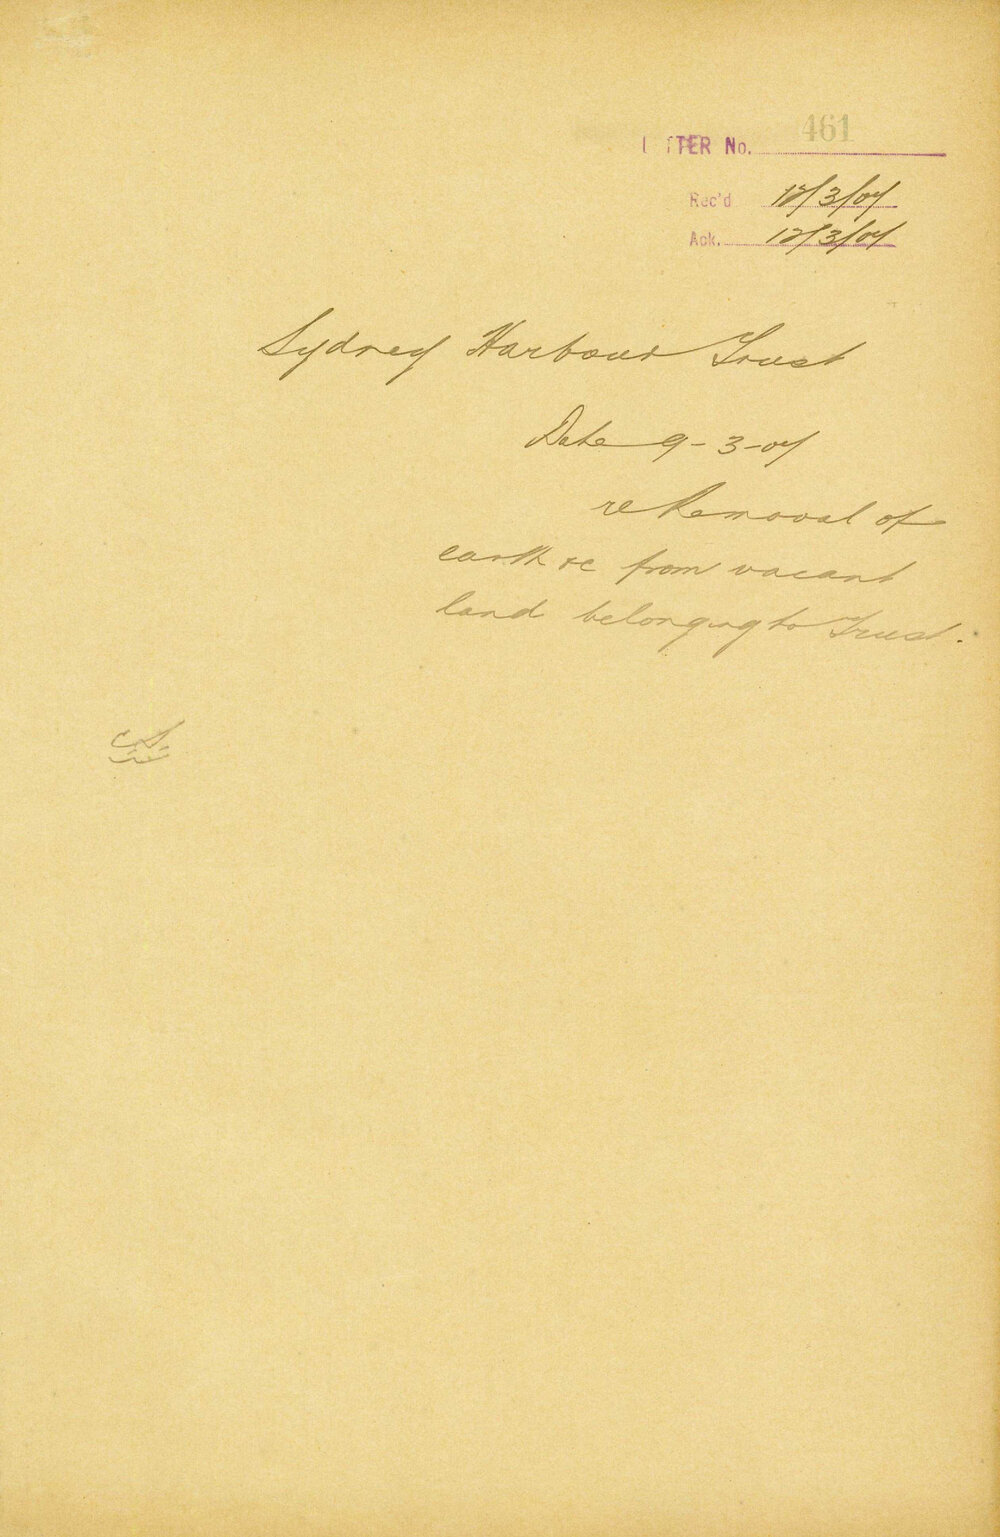 LETTER No. 461
Rec'd 12/3/07
Ack. 12/3/07
Sydney Harbour Trust
Date 9-3-07
re Removal of
earth &c from vacant
land belonging to Trust.